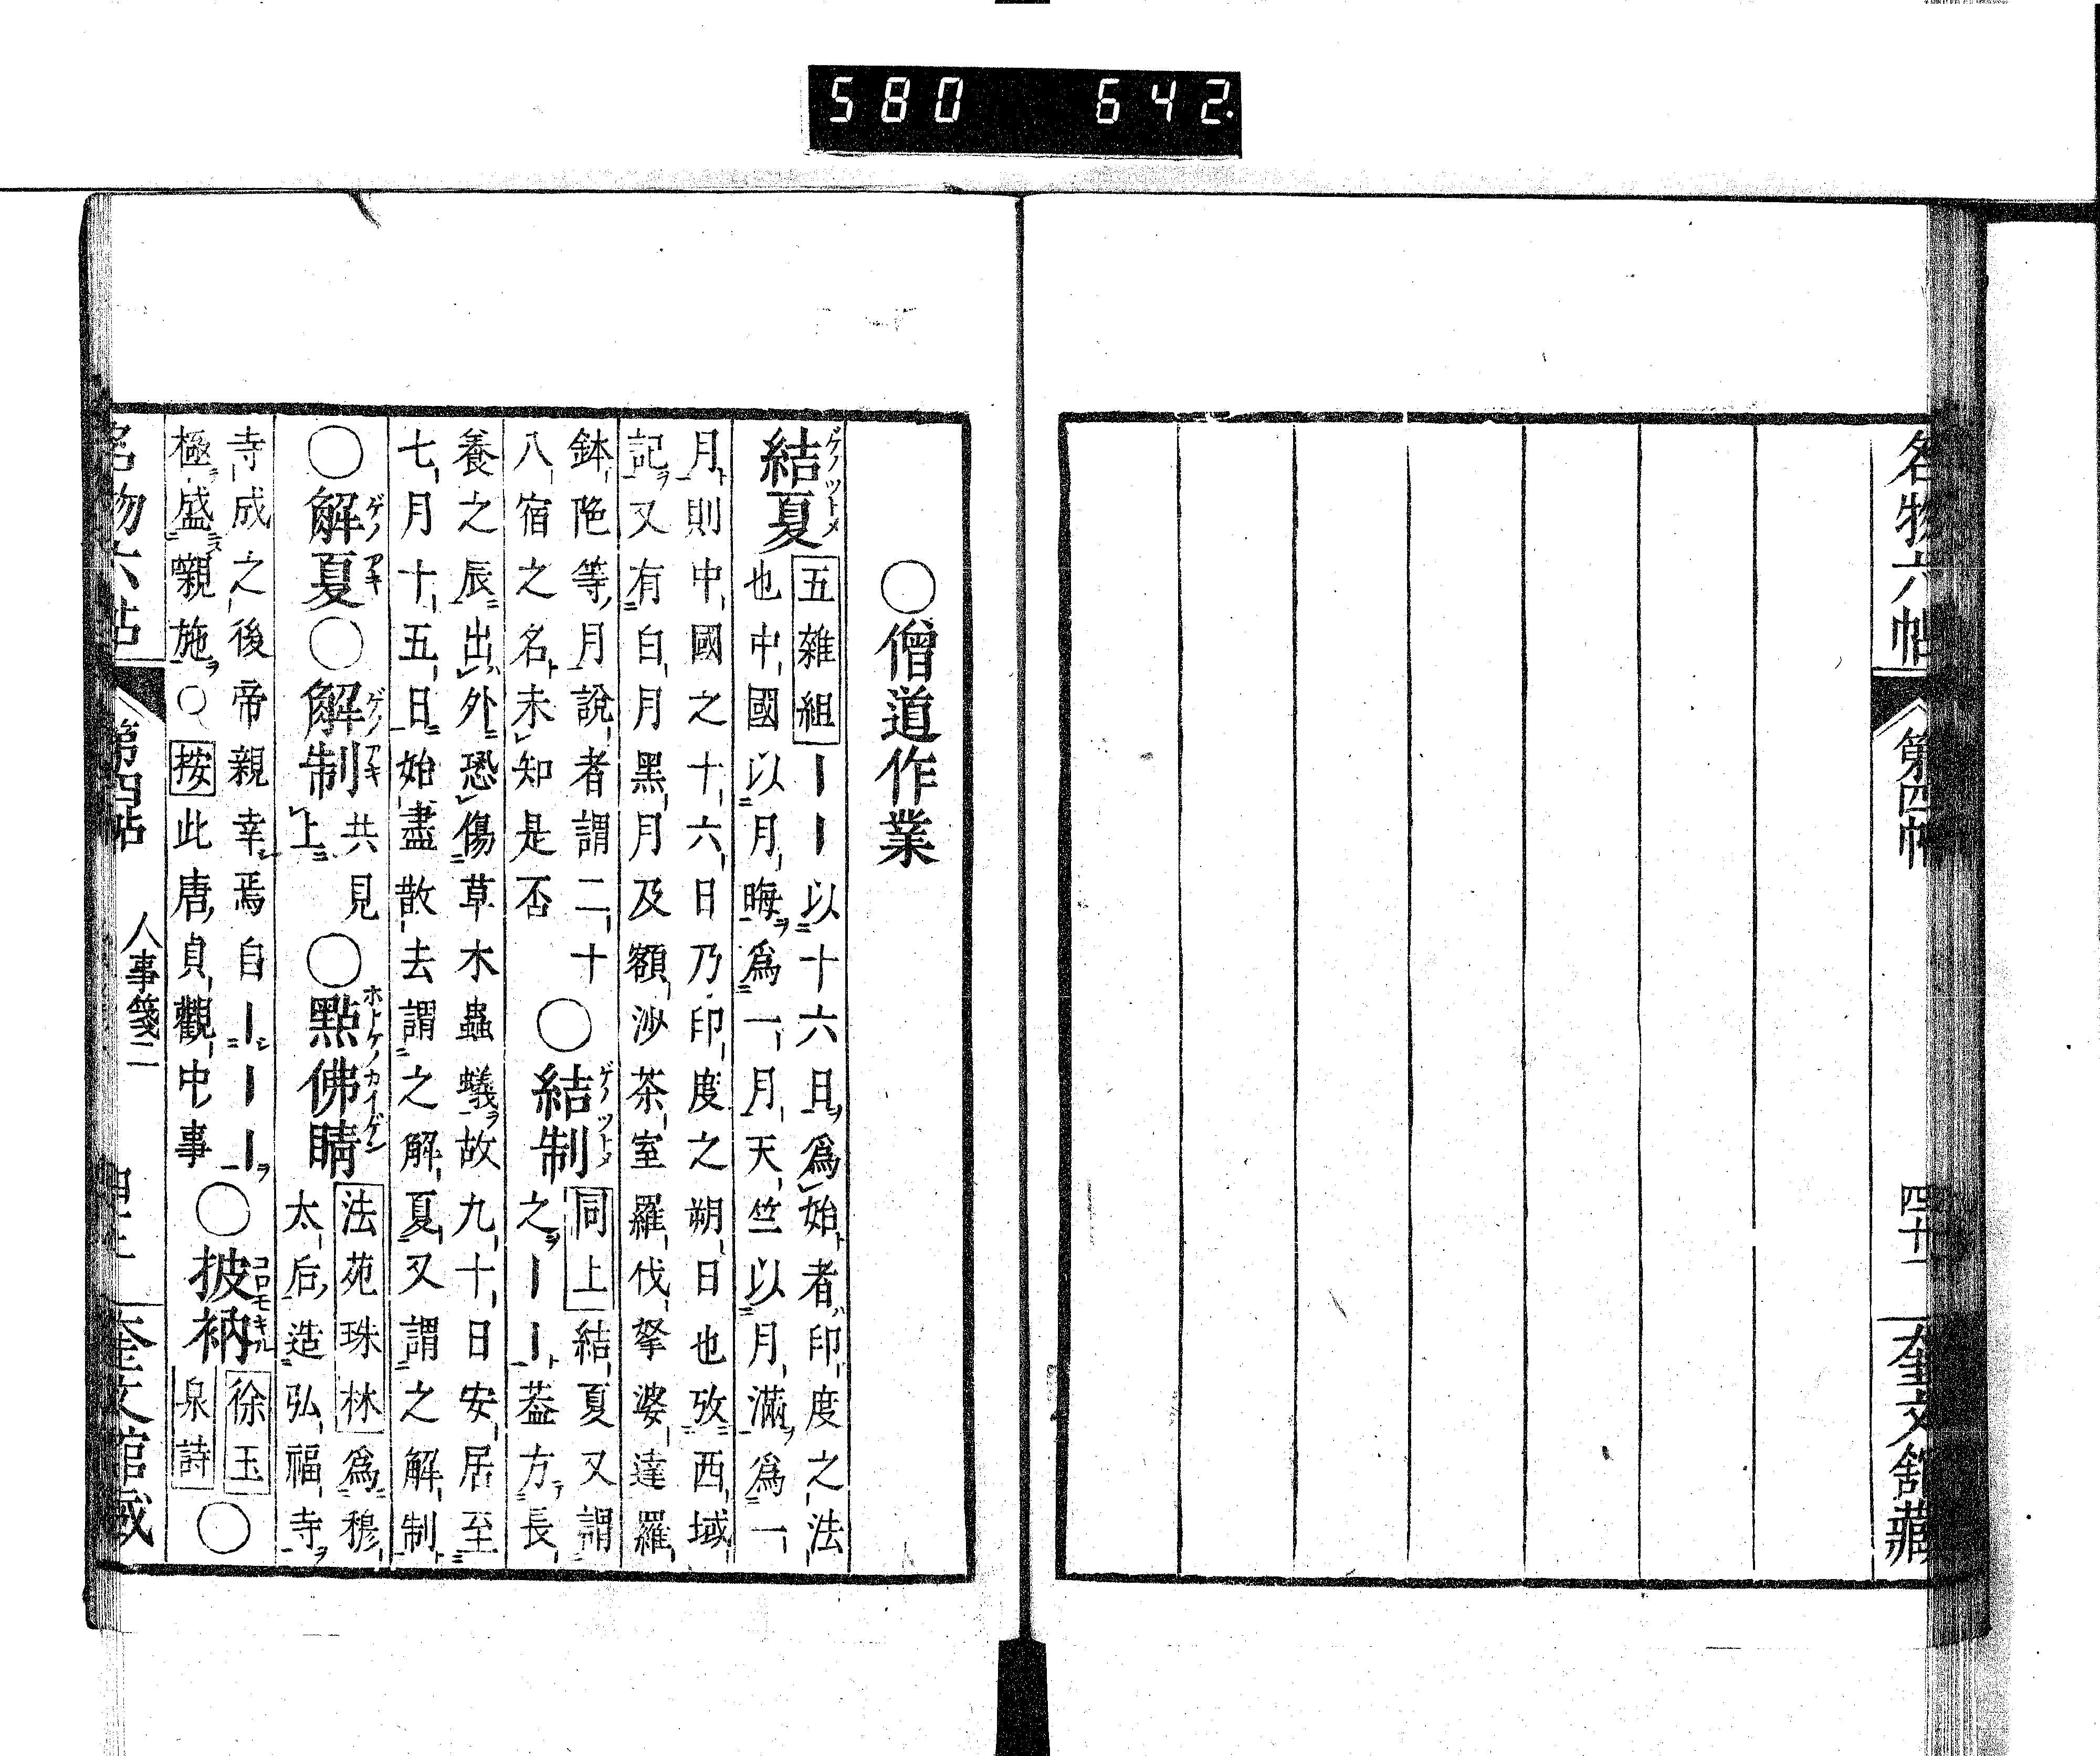 580 642.
名物六帖 第四帖 四十一 奎文館藏
○僧道作業
結夏 ゲノツトメ
五雜組 ｜｜以十六日爲始者印度之法
也中國以月晦爲一月天竺以月滿爲一
月則中國之十六日乃印度之朔日也攷西域
記又有白月黑月及額沙茶室羅伐拏婆達羅
鉢陁等月說者謂二十
八宿之名未知是否
○結制 ゲノツトメ
同上 結夏又謂
之｜｜葢方長
養之辰出外恐傷草木蟲蟻故九十日安居至
七月十五日始盡散去謂之解夏又謂之解制
○解夏 ゲノアキ ○解制 ゲノアキ
共見
上
○點佛睛 ホトケノカイゲン
法苑珠林 爲穆
太后造弘福寺
寺成之後帝親幸焉自｜｜｜
極盛嚫施○按此唐貞觀中事
○披衲 コロモキル
徐玉
泉詩
○
名物六帖 第四帖 人事箋二 奎文館藏